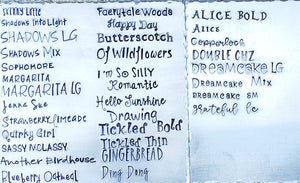 Skinny Latte
Shadows Into Light
SHADOWS LG
SHADOWS MIX
SOPHOMORE
MARGARITA
MARGARITA LG
Jenna Sue
Strawberry limeade
Quirky Girl
SASSY MCLASSY
Another Birdhouse
Blueberry Oatmeal
Fairytale Woods
Happy Day
Butterscotch
Of Wildflowers
I'm So SILLY
Romantic
Hello Sunshine
Drawing
Tickled Bold
Tickled Thin
GINGERBREAD
Ding Dong
ALICE BOLD
Alice
Copperlock
DOUBLE CHZ
DREAMCAKE LG
DREAMCAKE MIX
DREAMCAKE SM
grateful lc